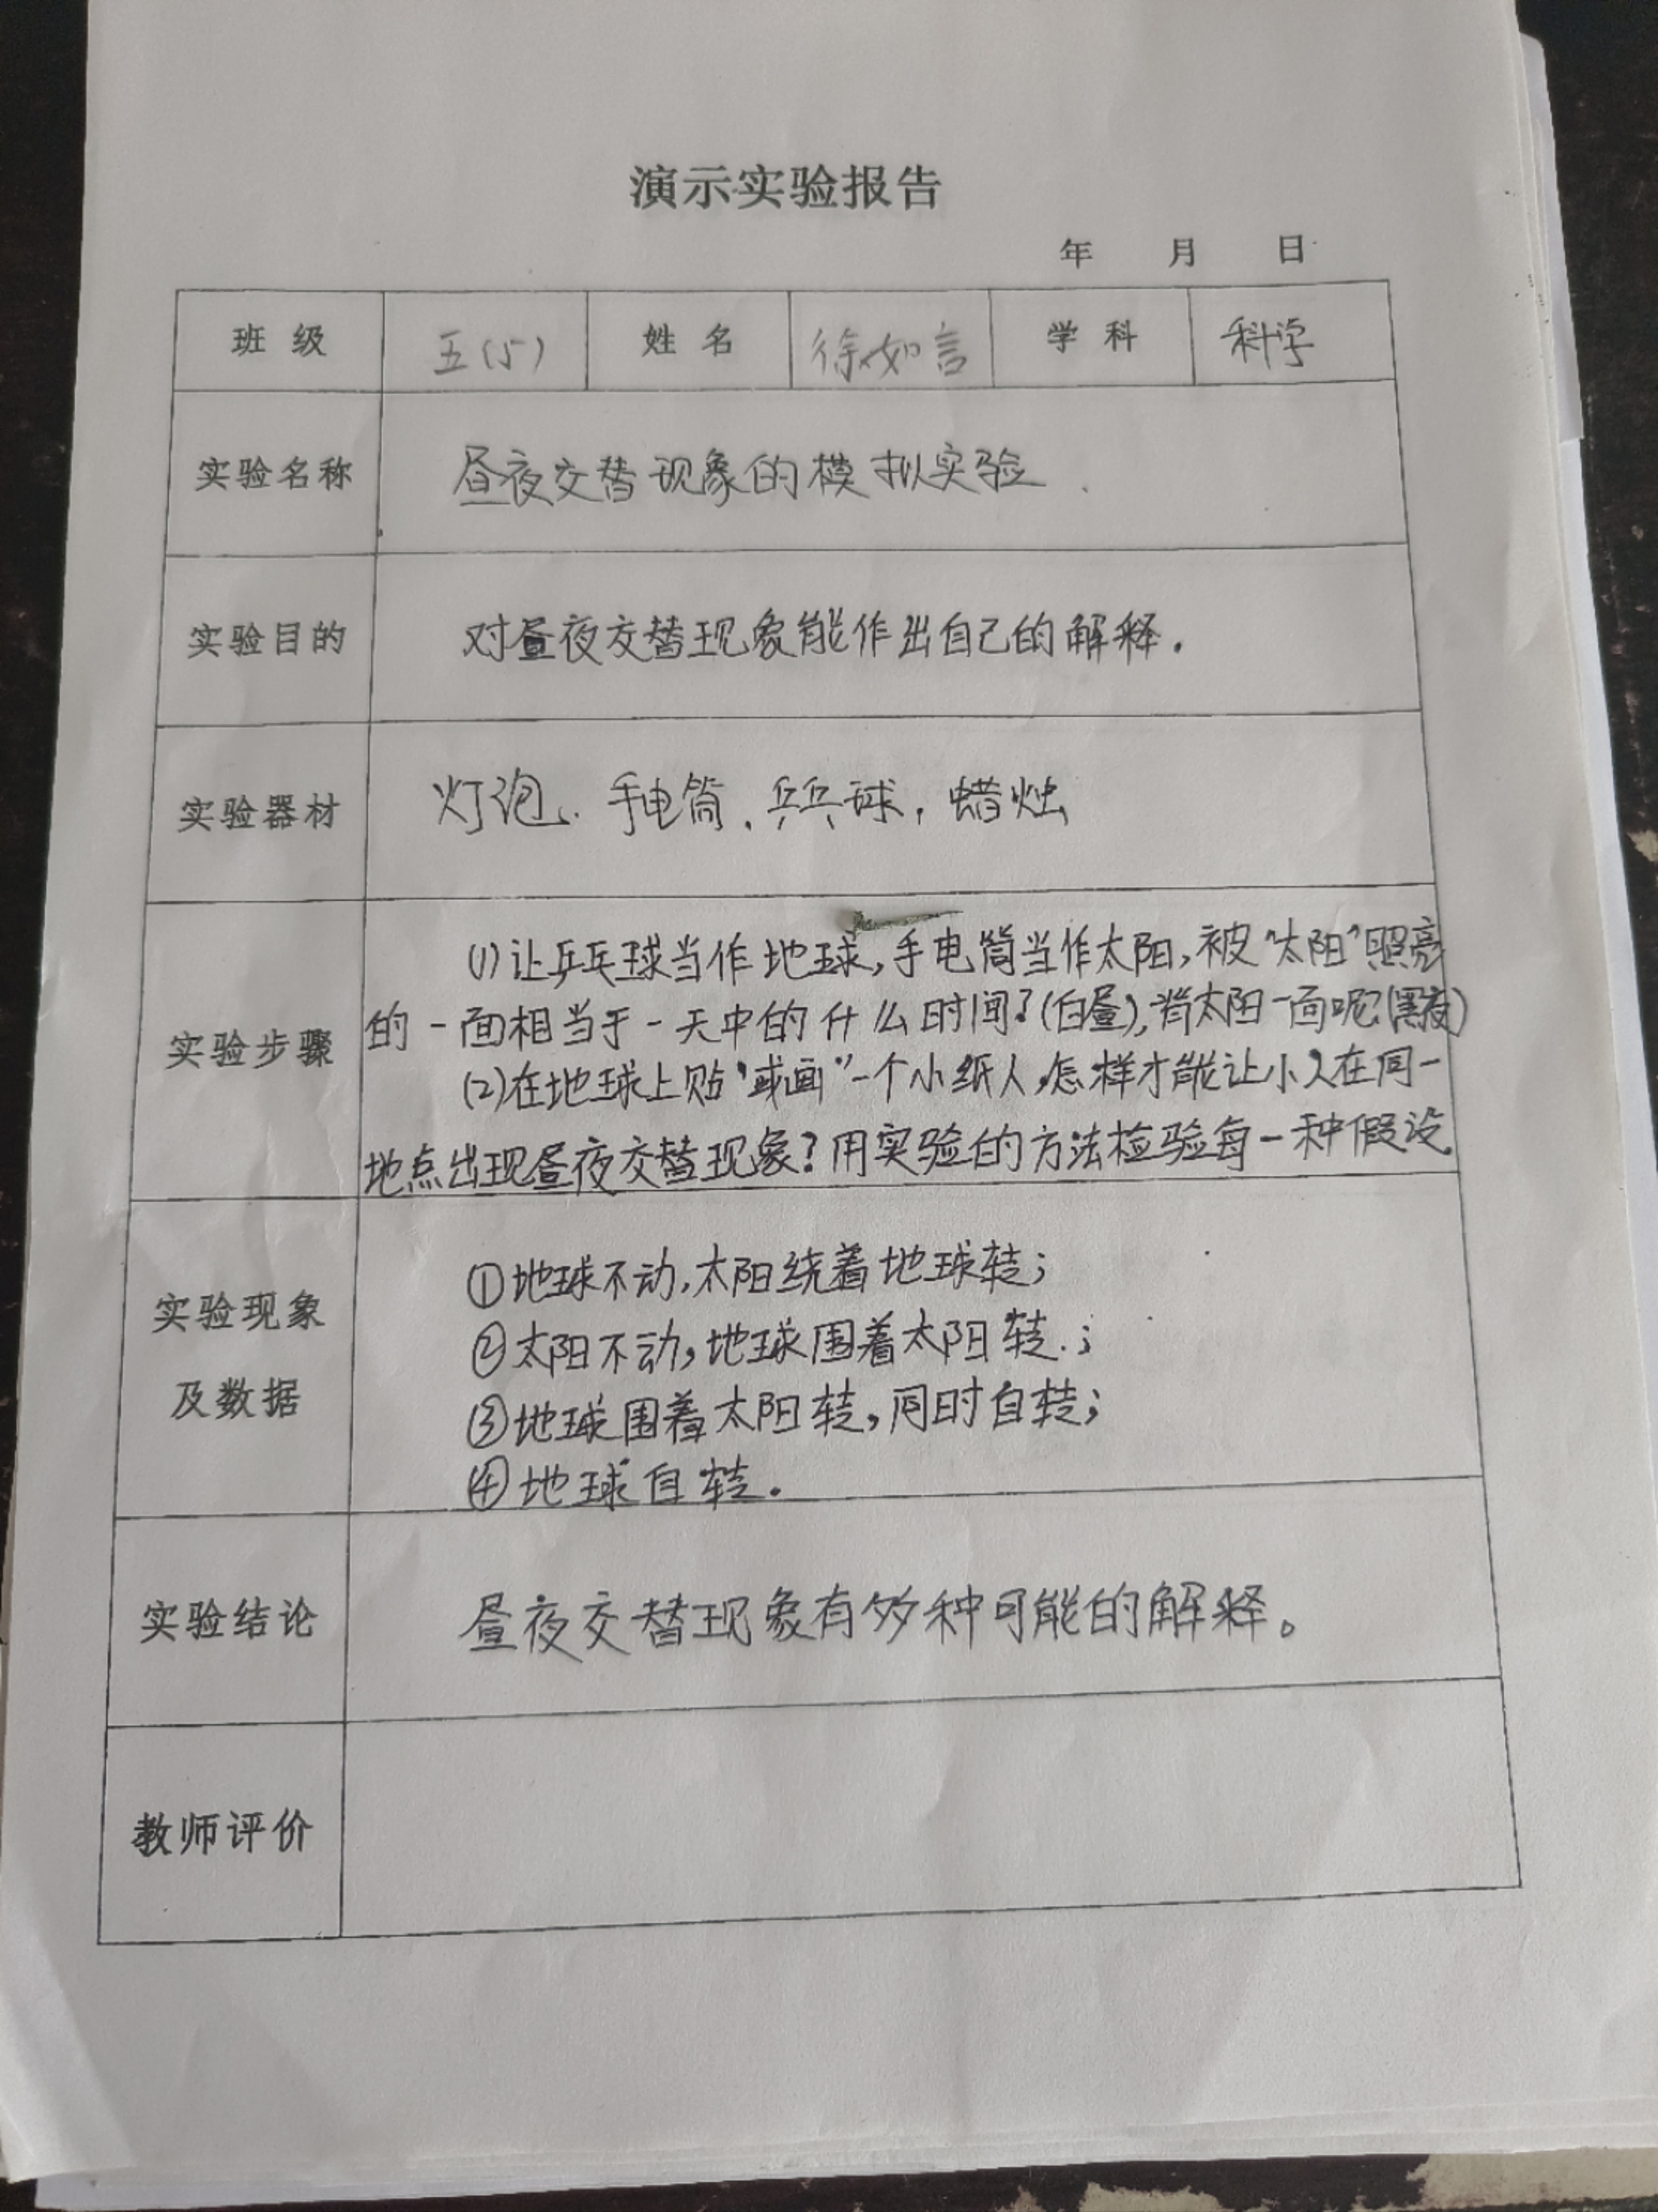 演示实验报告
年 月 日
班级 五(5) 姓名 徐如言 学科 科学
实验名称 昼夜交替现象的模拟实验.
实验目的 对昼夜交替现象能作出自己的解释.
实验器材 灯泡、手电筒、乒乓球,蜡烛
实验步骤
(1)让乒乓球当作地球,手电筒当作太阳,被“太阳”照亮
的一面相当于一天中的什么时间?(白昼),背太阳一面呢?(黑夜)
(2)在地球上贴“或画”一个小纸人,怎样才能让小人在同一
地点出现昼夜交替现象?用实验的方法检验每一种假设.
实验现象
及数据
①地球不动,太阳绕着地球转;
②太阳不动,地球围着太阳转.;
③地球围着太阳转,同时自转;
④地球自转.
实验结论 昼夜交替现象有多种可能的解释。
教师评价